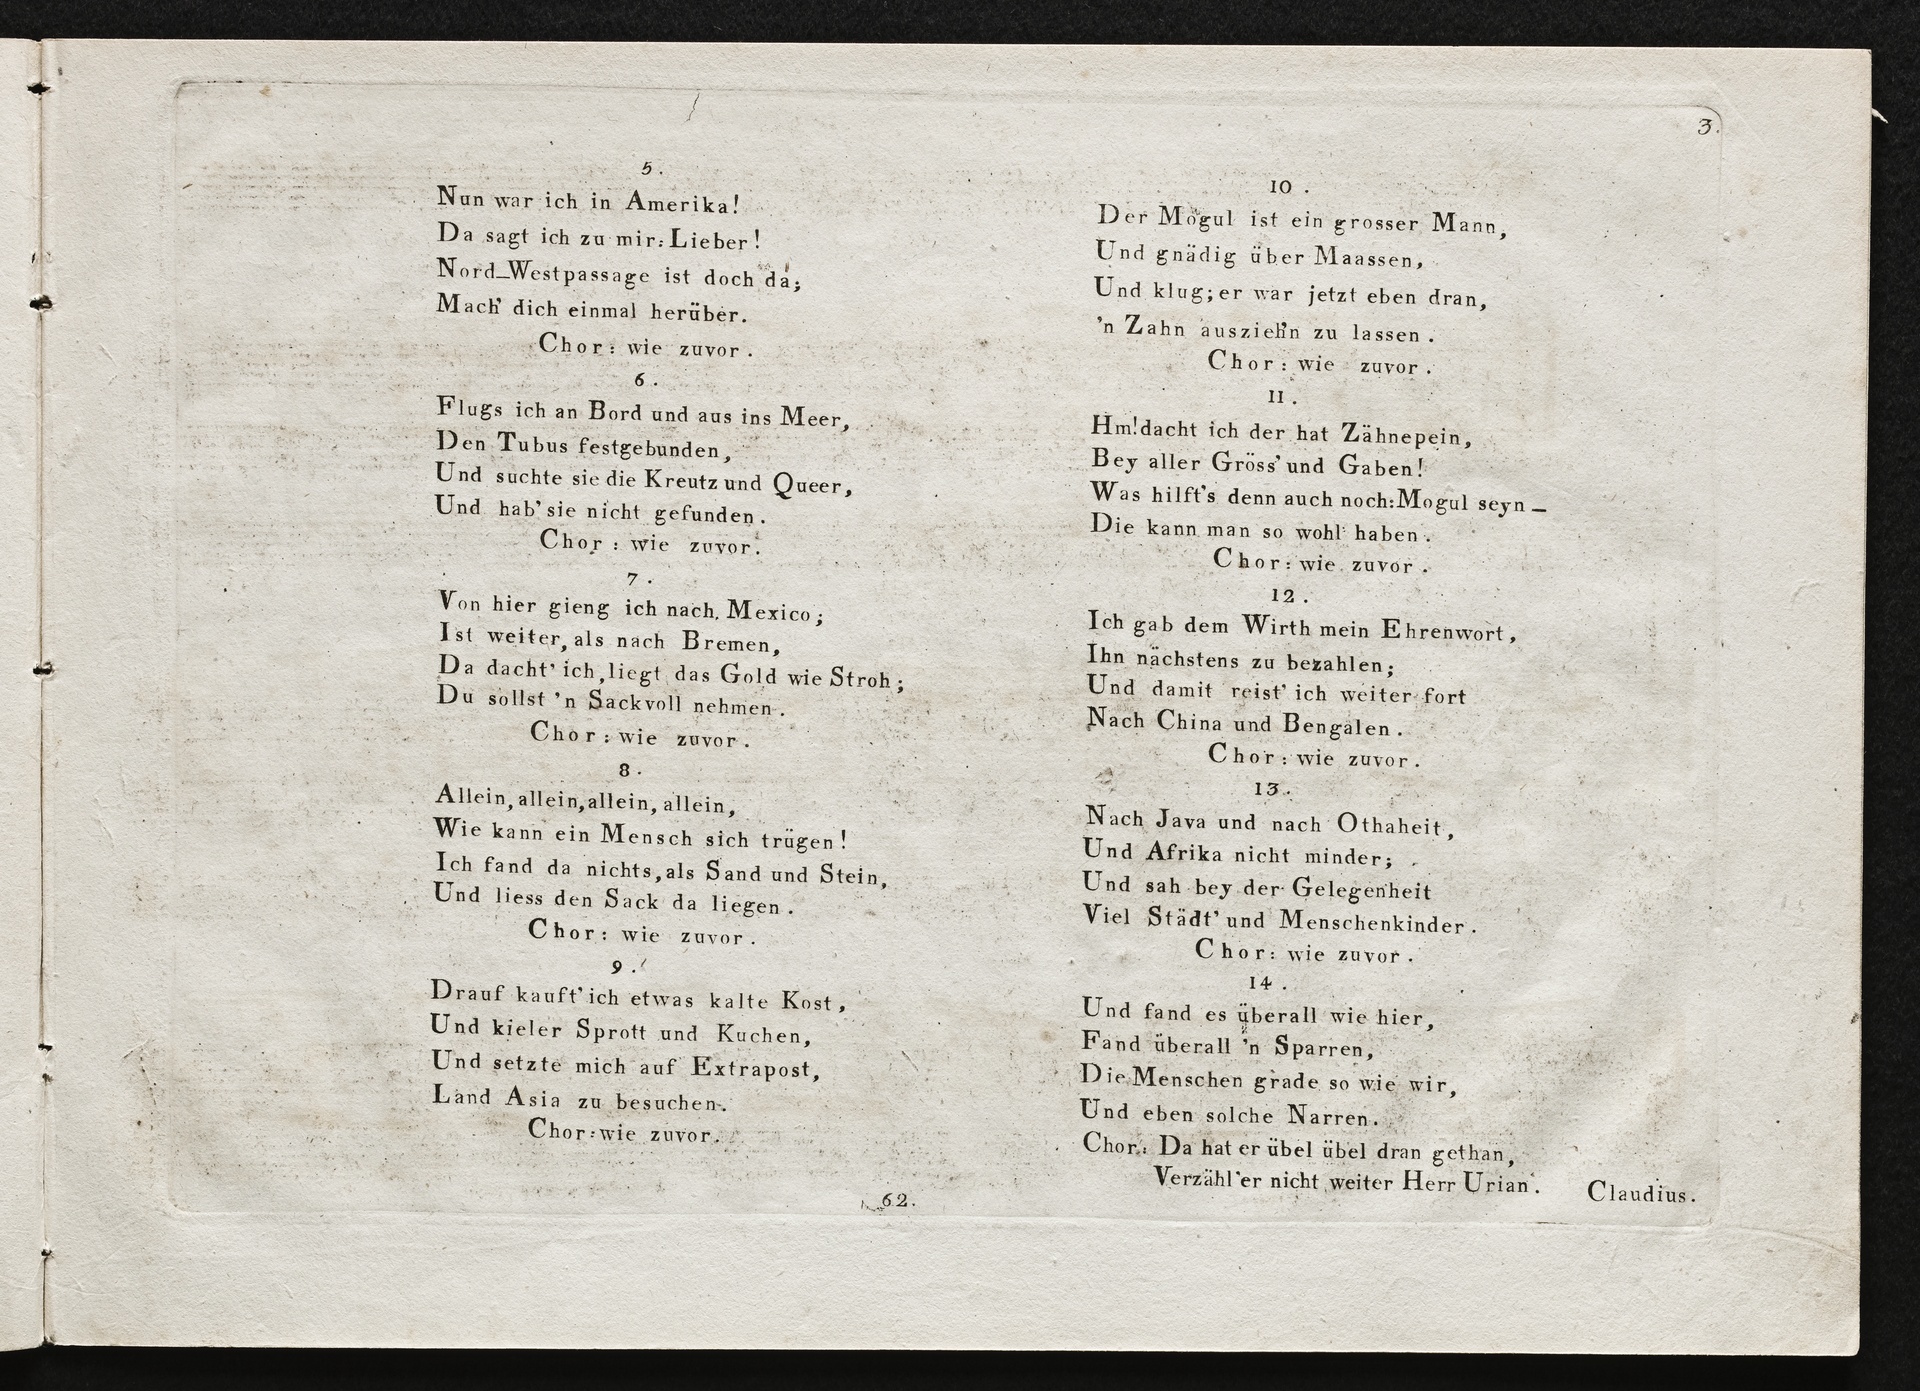 3.
5.
Nun war ich in Amerika!
Da sagt ich zu mir: Lieber!
Nord-Westpassage ist doch da;
Mach' dich einmal herüber.
Chor: wie zuvor.
6.
Flugs ich an Bord und aus ins Meer,
Den Tubus festgebunden,
Und suchte sie die Kreutz und Queer,
Und hab' sie nicht gefunden.
Chor: wie zuvor.
7.
Von hier gieng ich nach Mexico;
Ist weiter, als nach Bremen,
Da dacht' ich, liegt das Gold wie Stroh;
Du sollst 'n Sackvoll nehmen.
Chor: wie zuvor.
8.
Allein, allein, allein, allein,
Wie kann ein Mensch sich trügen!
Ich fand da nichts, als Sand und Stein,
Und liess den Sack da liegen.
Chor: wie zuvor.
9.
Drauf kauft' ich etwas kalte Kost,
Und kieler Sprott und Kuchen,
Und setzte mich auf Extrapost,
Land Asia zu besuchen.
Chor: wie zuvor.
10.
Der Mogul ist ein grosser Mann,
Und gnädig über Maassen,
Und klug; er war jetzt eben dran,
'n Zahn auszieh'n zu lassen.
Chor: wie zuvor.
11.
Hm! dacht ich der hat Zähnepein,
Bey aller Gröss' und Gaben!
Was hilft's denn auch noch: Mogul seyn –
Die kann man so wohl haben.
Chor: wie zuvor.
12.
Ich gab dem Wirth mein Ehrenwort,
Ihn nächstens zu bezahlen;
Und damit reist' ich weiter fort
Nach China und Bengalen.
Chor: wie zuvor.
13.
Nach Java und nach Othaheit,
Und Afrika nicht minder;
Und sah bey der Gelegenheit
Viel Städt' und Menschenkinder.
Chor: wie zuvor.
14.
Und fand es überall wie hier,
Fand überall 'n Sparren,
Die Menschen grade so wie wir,
Und eben solche Narren.
Chor: Da hat er übel übel dran gethan,
Verzähl' er nicht weiter Herr Urian.
Claudius.
62.